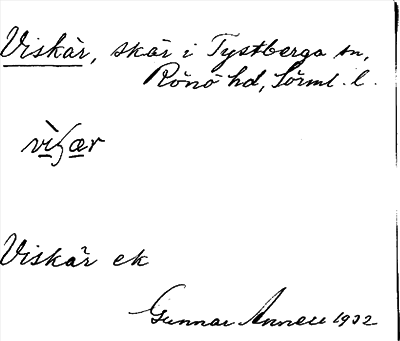 Viskär, skär i Tystberga sn,
Rönö hd, Sörml. l.
Viskär ek
Gunnar Annell 1932